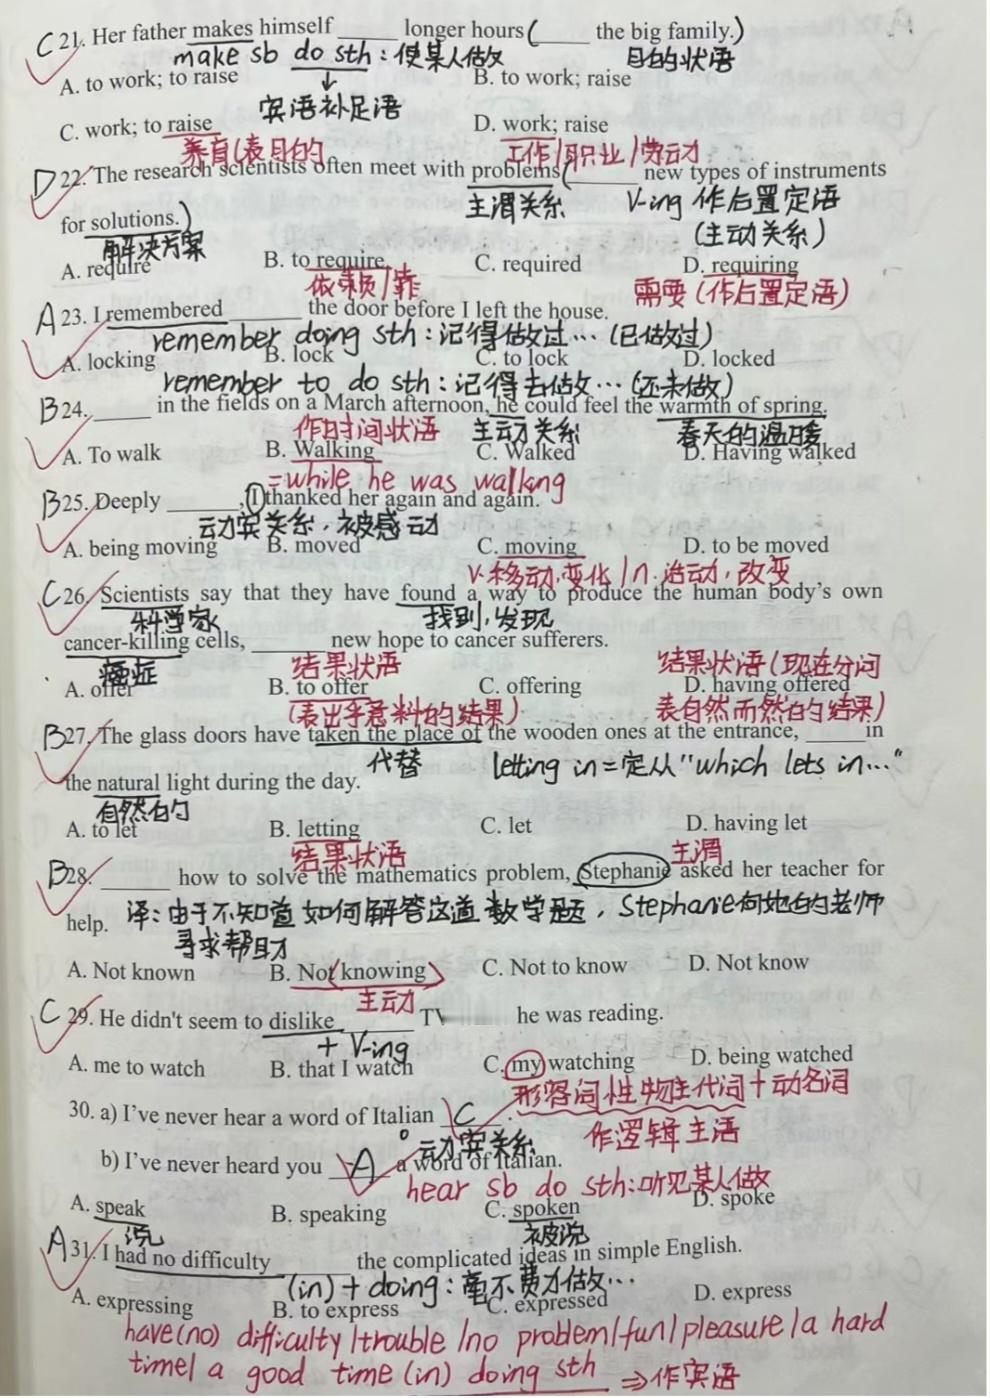 C 21. Her father makes himself _____ longer hours (_____ the big family.)
make sb do sth : 使某人做 目的状语
A. to work; to raise B. to work; raise
宾语补足语
C. work; to raise D. work; raise
养育(表目的 工作/职业/劳动
D 22. The research scientists often meet with problems (______ new types of instruments
主谓关系 V-ing 作后置定语
for solutions.) (主动关系)
解决方案
A. require B. to require C. required D. requiring
依赖/靠 需要 (作后置定语)
A 23. I remembered ______ the door before I left the house.
remember doing sth : 记得做过… (已做过)
A. locking B. lock C. to lock D. locked
remember to do sth : 记得去做… (还未做)
B 24. _____ in the fields on a March afternoon, he could feel the warmth of spring.
作时间状语 主动关系 春天的温暖
A. To walk B. Walking C. Walked D. Having walked
=while he was walking
B 25. Deeply ______, I thanked her again and again.
动宾关系, 被感动
A. being moving B. moved C. moving D. to be moved
V.移动,变化/n.活动,改变
C 26. Scientists say that they have found a way to produce the human body's own
科学家 找到,发现
cancer-killing cells, ______ new hope to cancer sufferers.
癌症 结果状语 结果状语(现在分词
A. offer B. to offer C. offering D. having offered
(表出乎意料的结果) 表自然而然的结果)
B 27. The glass doors have taken the place of the wooden ones at the entrance, _____in
代替 letting in = 定从 "which lets in…"
the natural light during the day.
自然的
A. to let B. letting C. let D. having let
结果状语 主谓
B 28. ______ how to solve the mathematics problem, Stephanie asked her teacher for
help. 译: 由于不知道如何解答这道数学题, Stephanie向她的老师
寻求帮助
A. Not known B. Not knowing C. Not to know D. Not know
主动
C 29. He didn't seem to dislike ______ TV he was reading.
+ V-ing
A. me to watch B. that I watch C. my watching D. being watched
形容词性物主代词+动名词
30. a) I've never hear a word of Italian C .
动宾关系 作逻辑主语
b) I've never heard you A a word of Italian.
hear sb do sth:听见某人做
A. speak B. speaking C. spoken D. spoke
说 被说
A 31. I had no difficulty ______ the complicated ideas in simple English.
(in) + doing : 毫不费力做…
A. expressing B. to express C. expressed D. express
have(no) difficulty/trouble/no problem/fun/pleasure/a hard
time/ a good time (in) doing sth ⇒作宾语